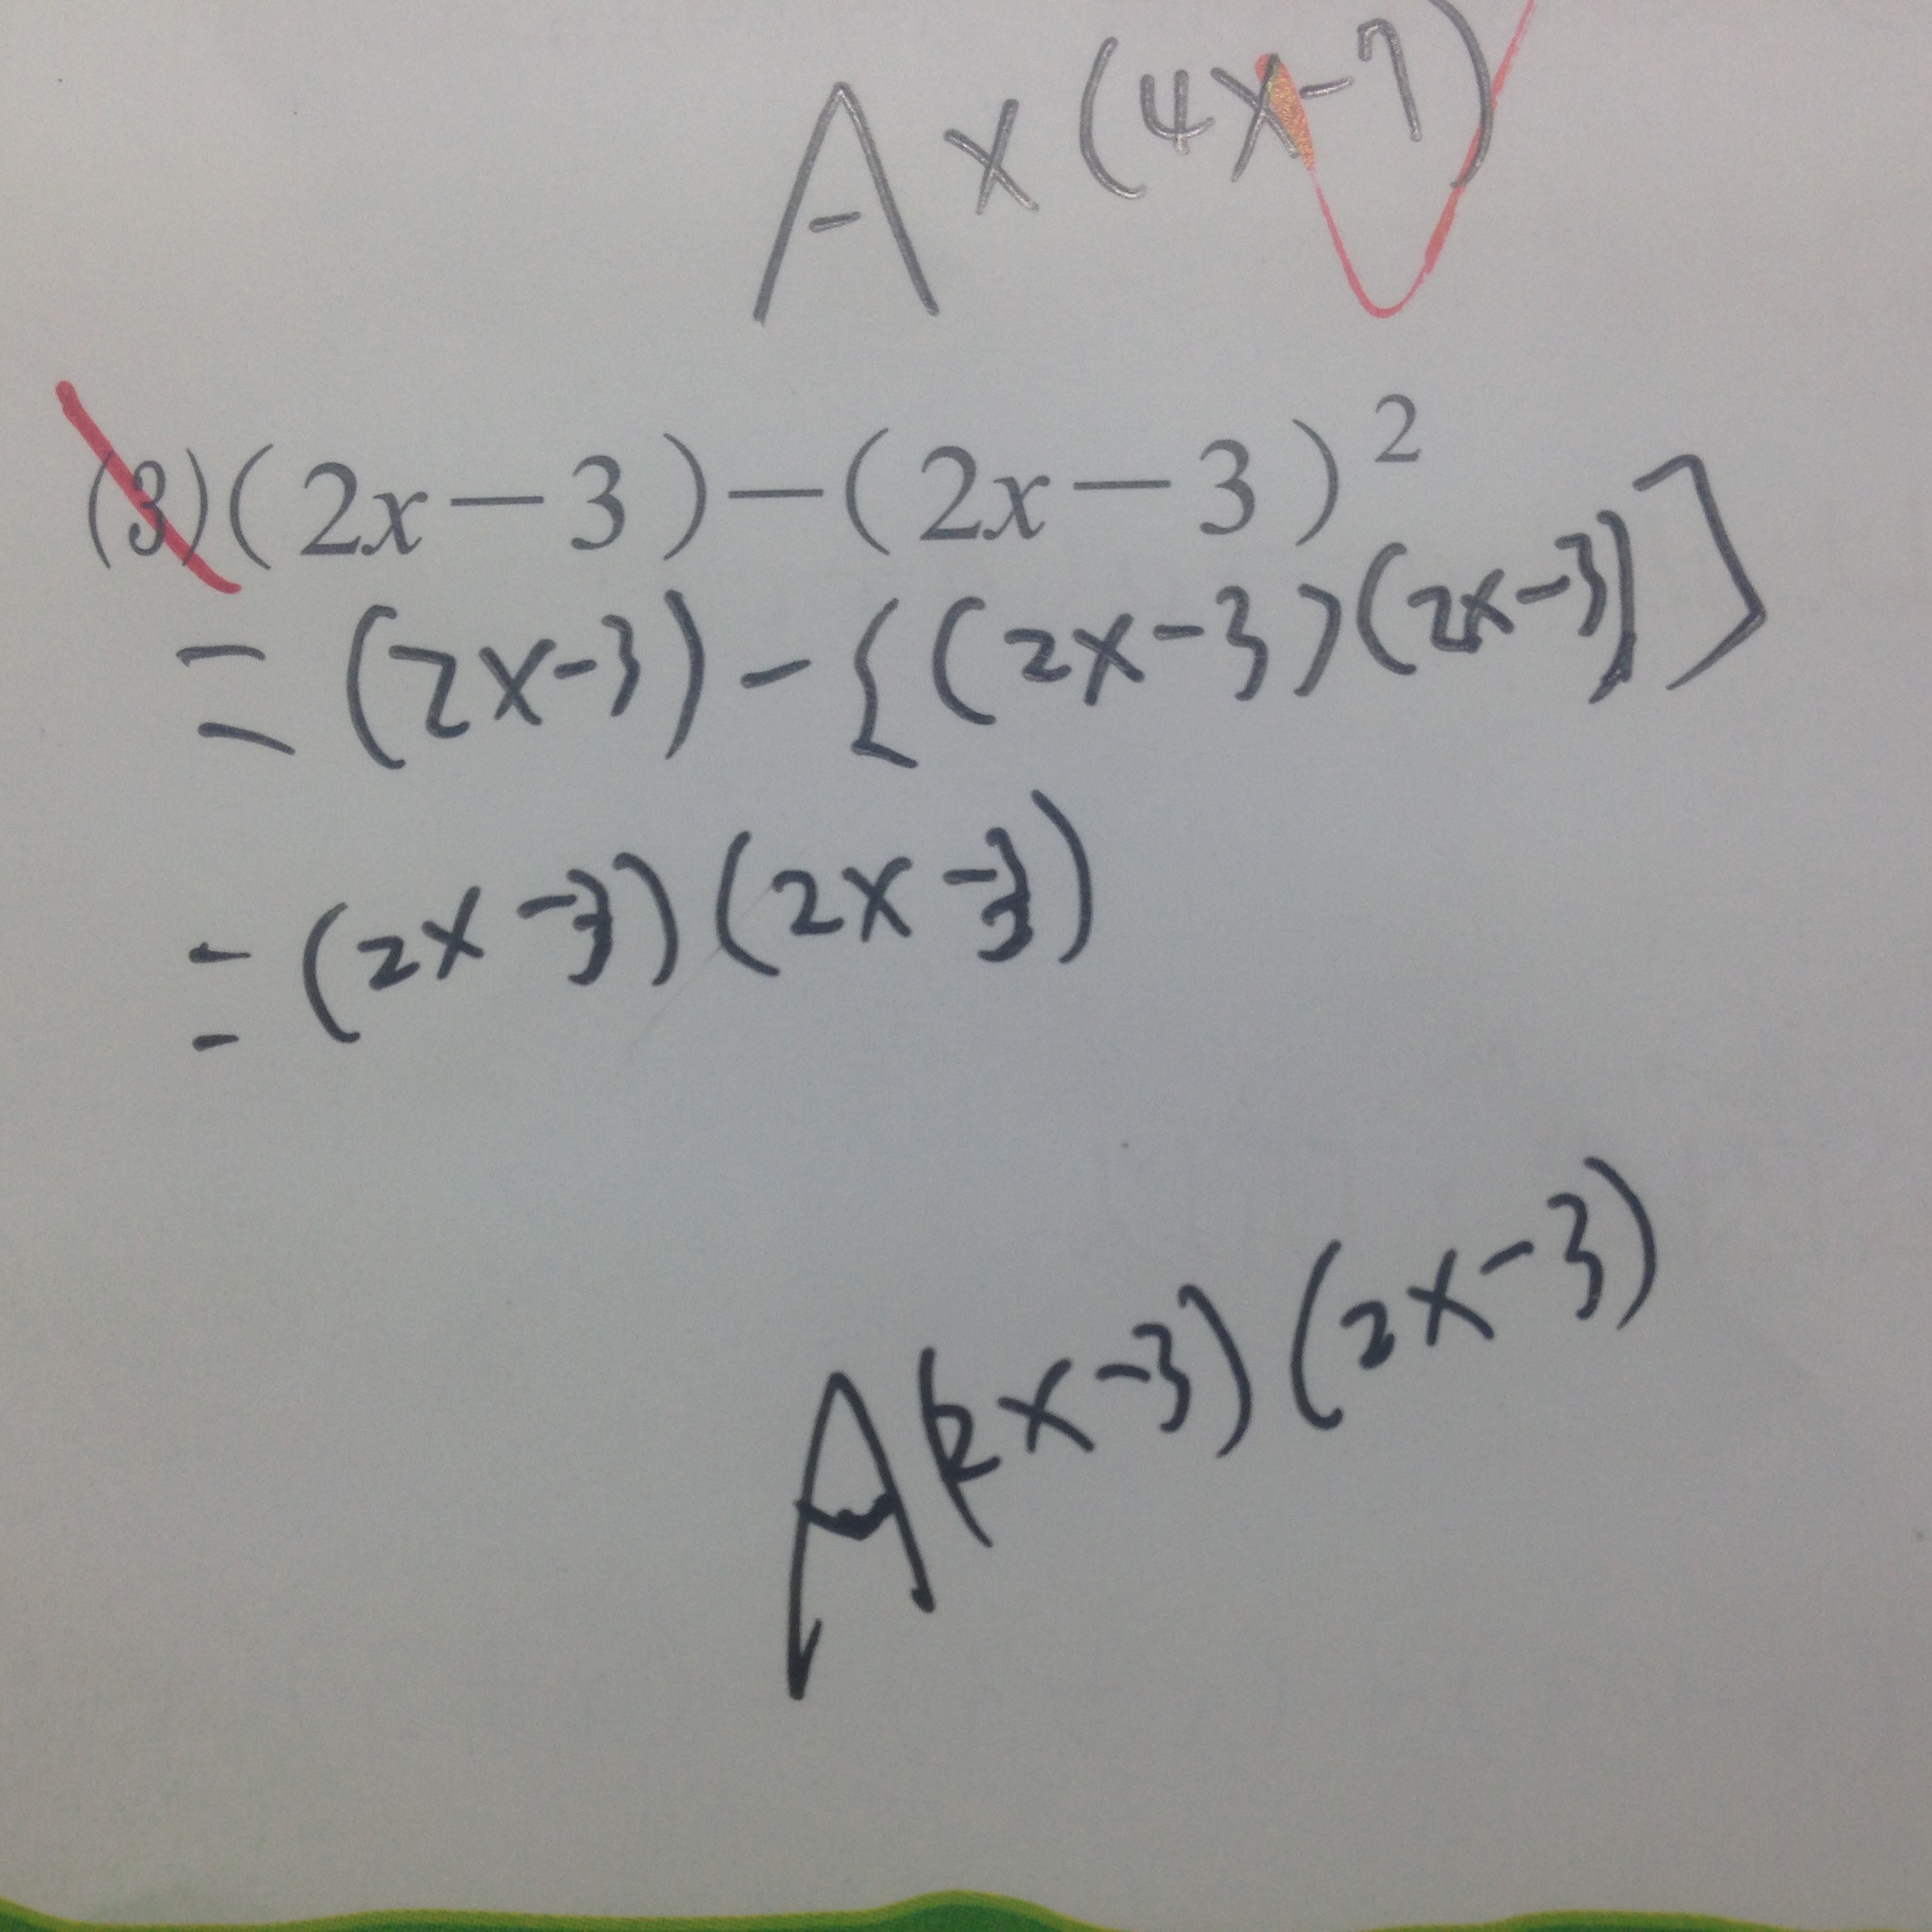 A x(4x-7)
(3)(2x-3)-(2x-3)²
=(2x-3)-[(2x-3)(2x-3)]
=(2x-3)(2x-3)
A(2x-3)(2x-3)